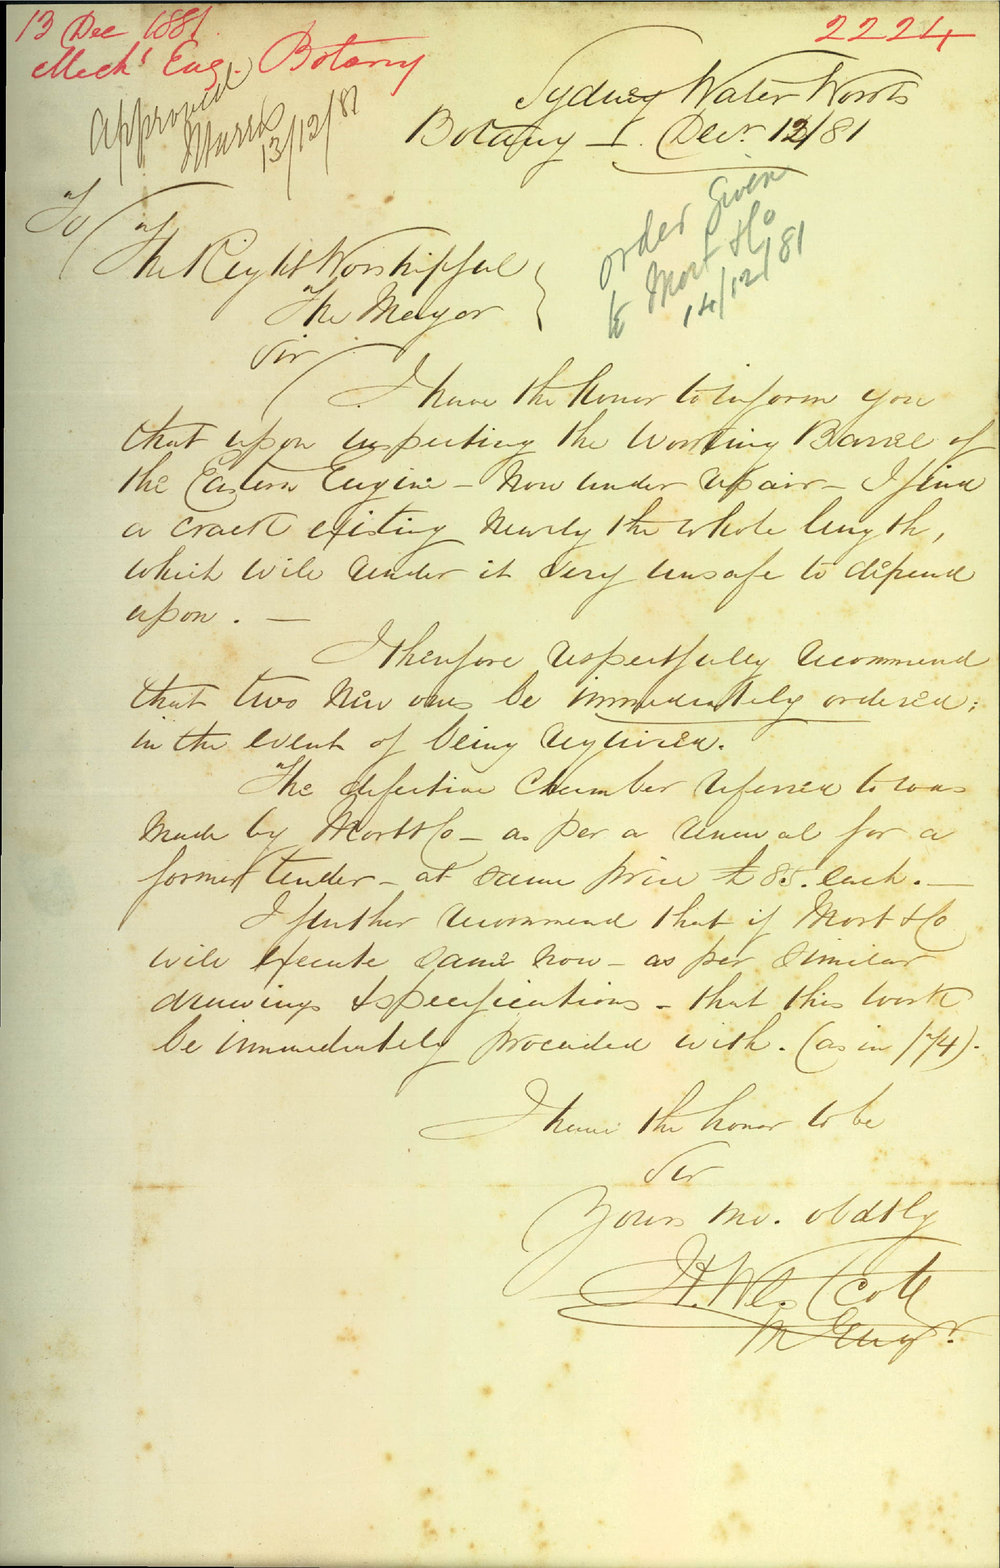 13 Dec 1881
2224
Mech! Eng. Botany
Approved
Harris
13/12/81
Sydney Water Works
Botany Decr. 12/81
order given
to Mort & Co
14/12/81
To
The Right Worshipful
The Mayor
Sir
I have the honor to inform you
that upon inspecting the Working Barrel of
the Eastern Engine - Now under repair - I find
a crack existing nearly the whole length,
which will render it very unsafe to depend
upon. —
I therefore respectfully recommend
that two new ones be immediately ordered;
in the event of being required.
The defective Chamber referred to was
Made by Mort & Co - as per a renewal for a
former tender - at same price £85. each. —
I further recommend that if Mort & Co
will execute same now - as per similar
drawings & specifications - that this work
be immediately proceeded with. (as in /74).
I have the honor to be
Sir
Yours mo. obdtly
H. Westcott
M Engr.